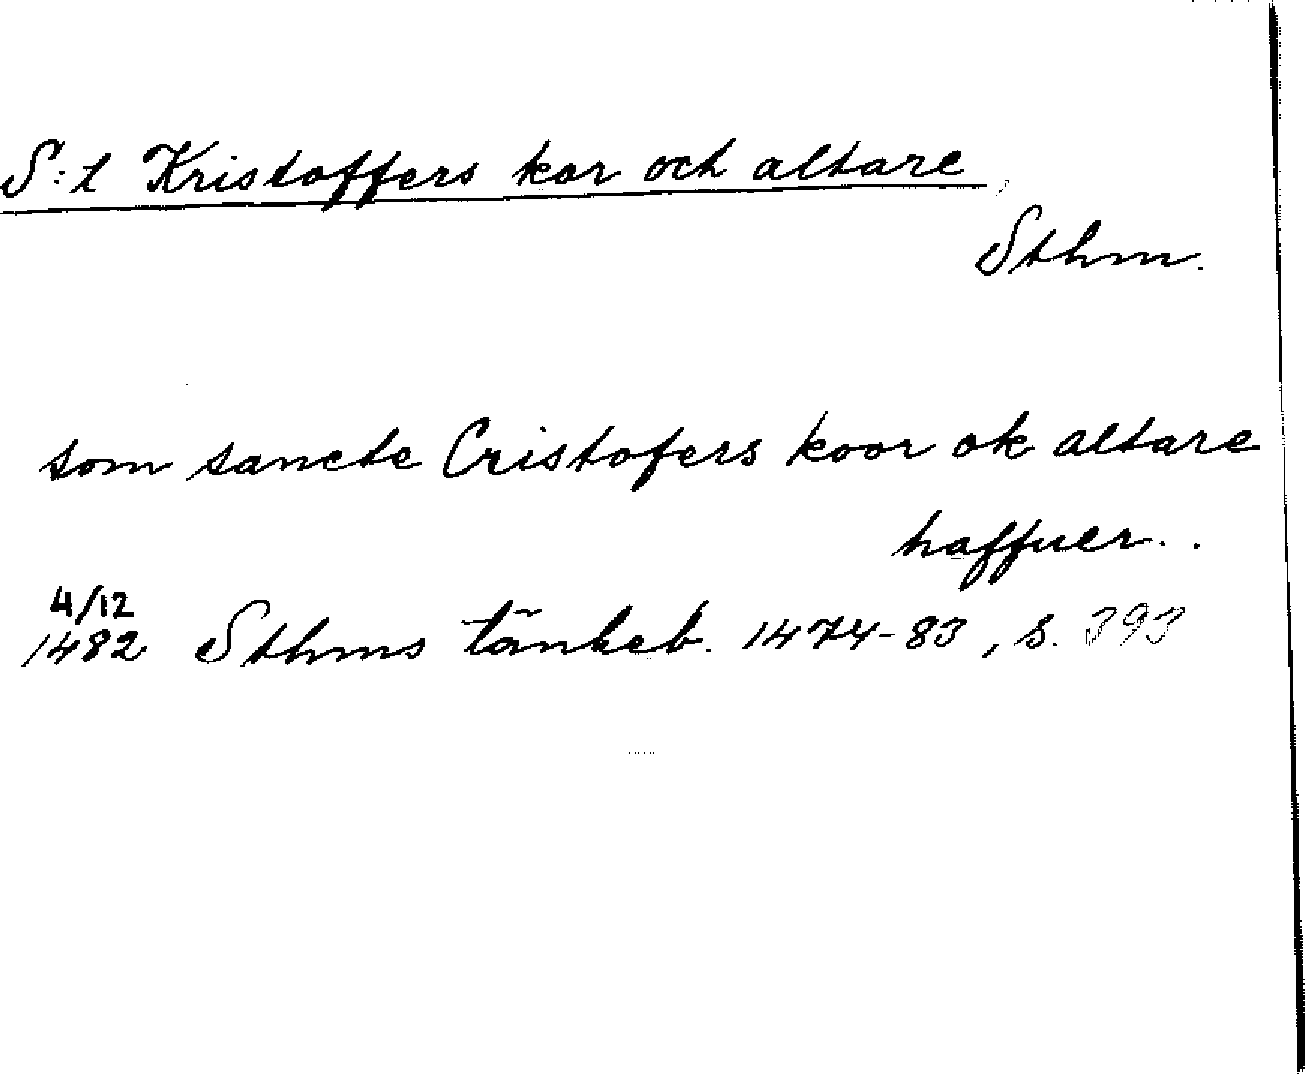 S:t Kristoffers kor och altare,
Sthm.
som sancte Cristofers koor ok altare
haffuer..
4/12
1482 Sthms tänkeb. 1474-83, s. 393